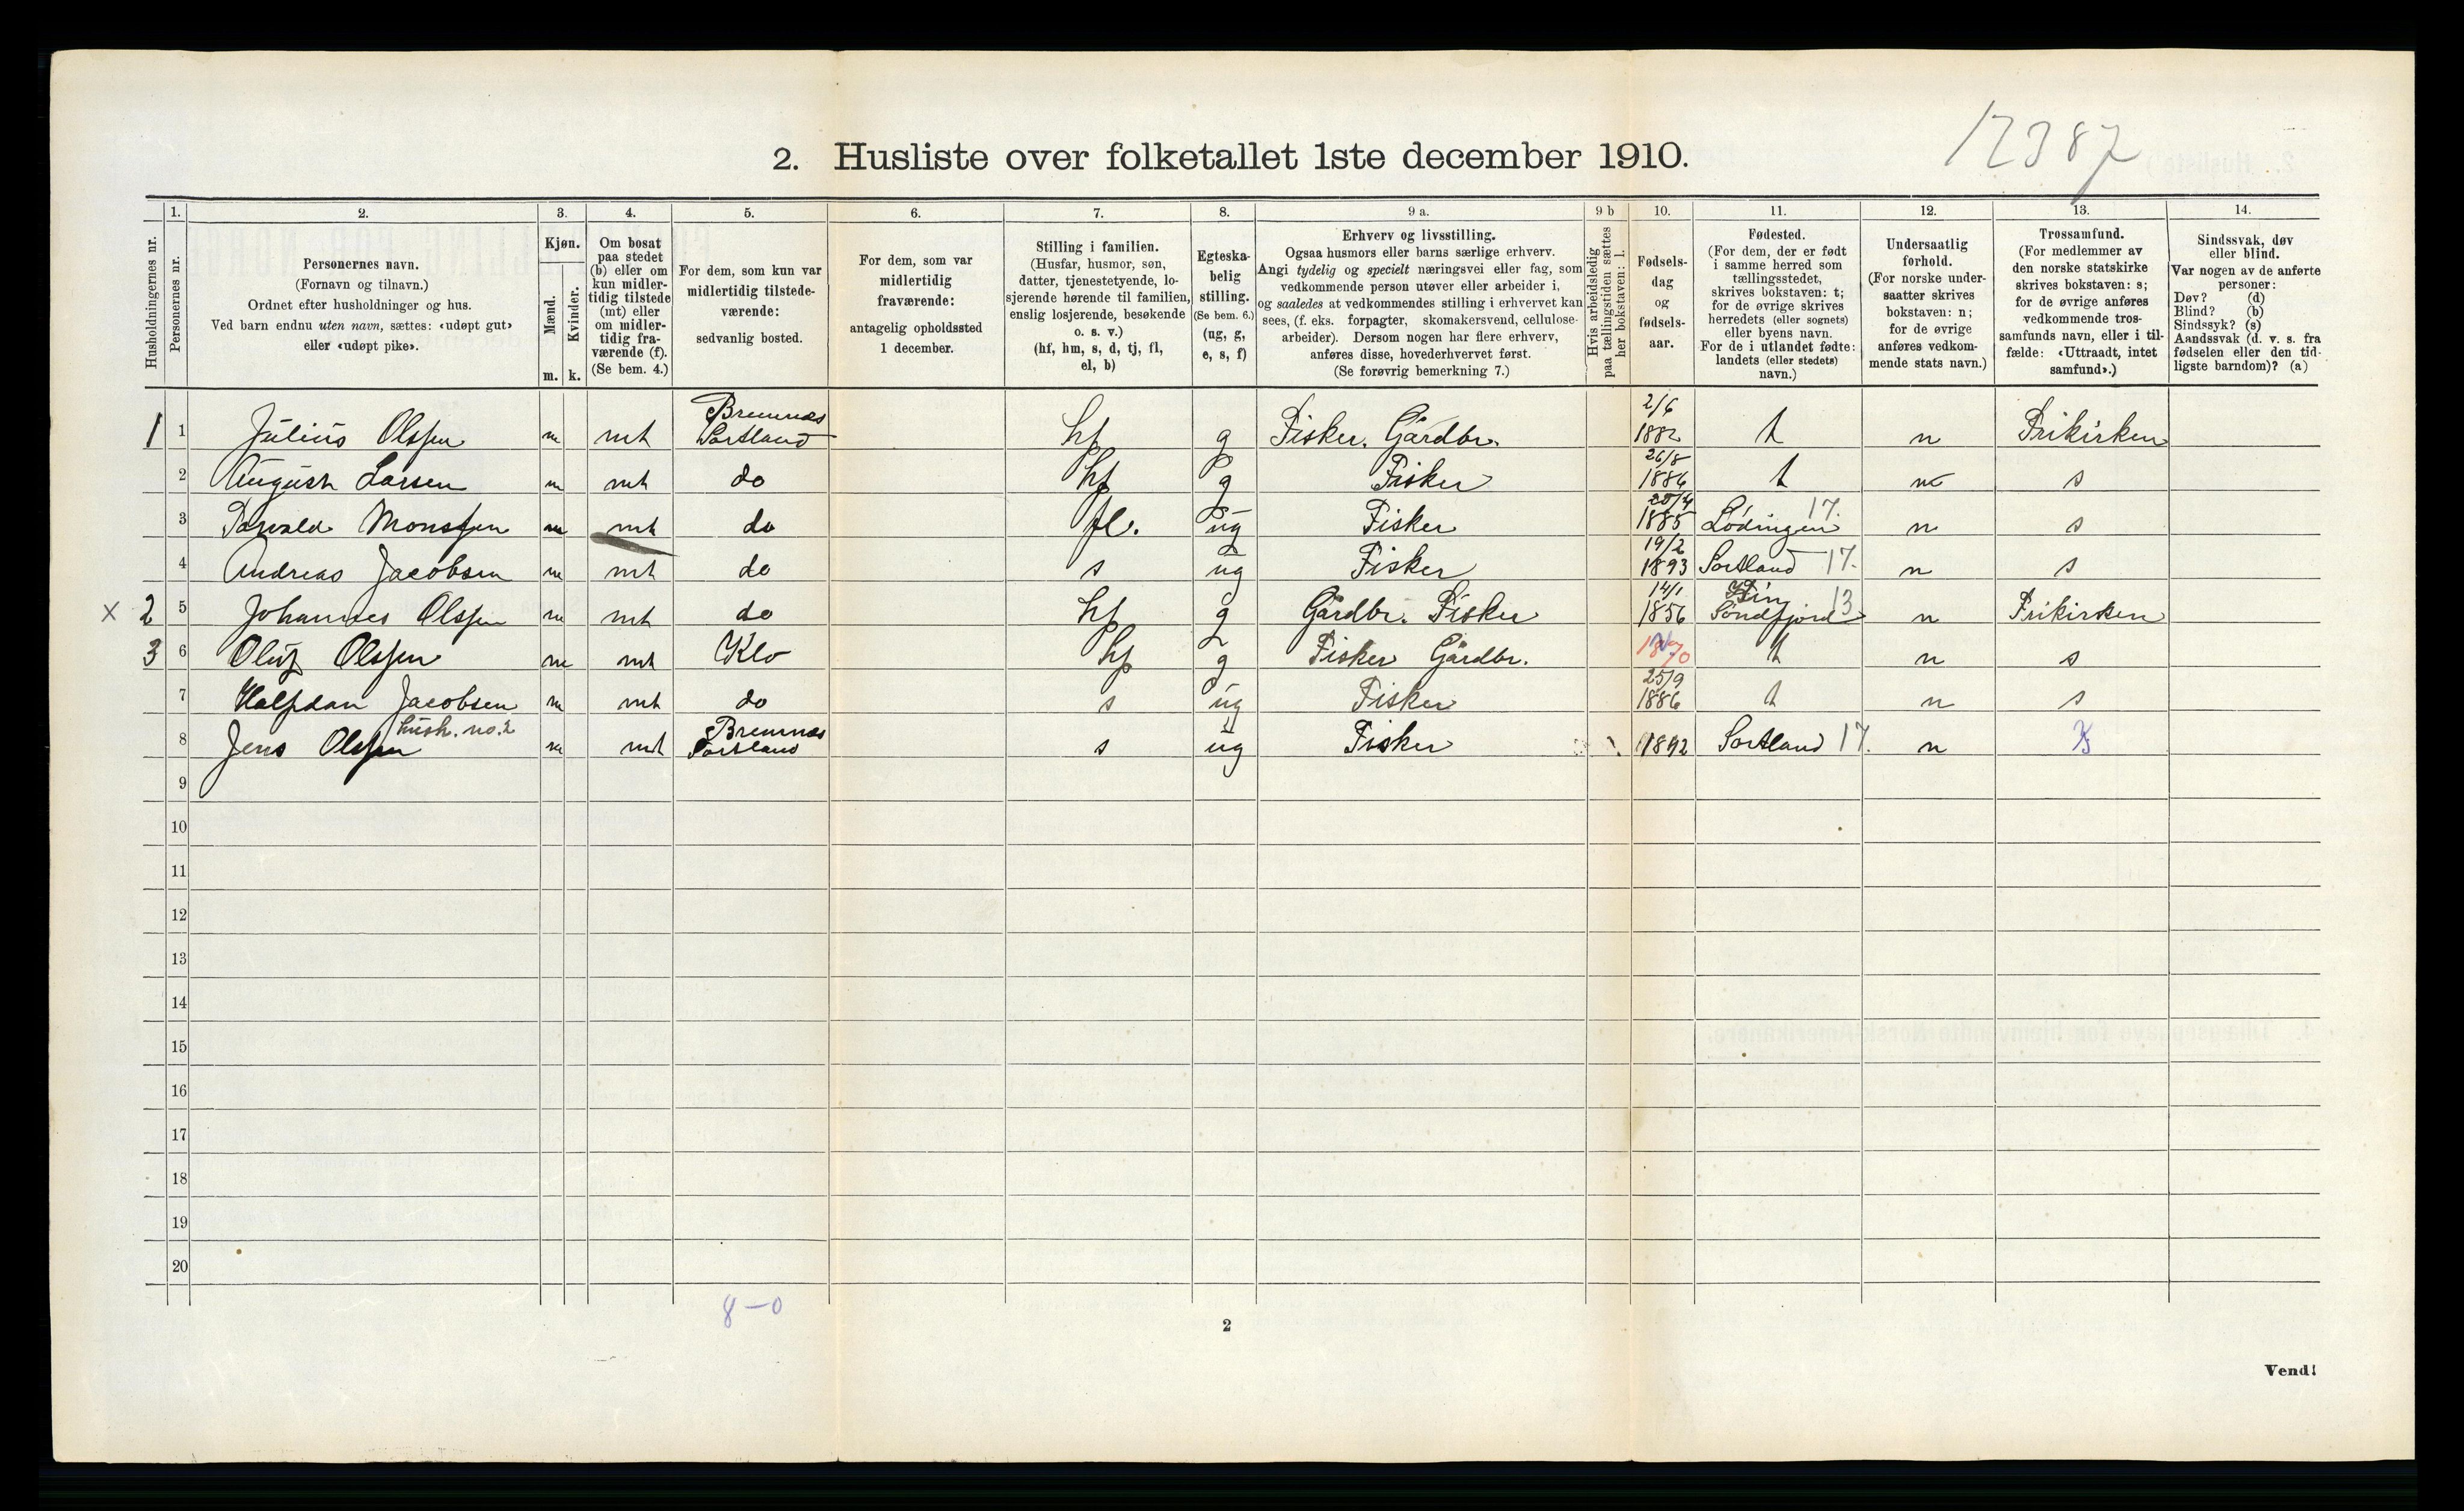 12387
2. Husliste over folketallet 1ste december 1910.
Husholdningernes nr.
1.
Personernes nr.
2.
Personernes navn.
(Fornavn og tilnavn.)
Ordnet efter husholdninger og hus.
Ved barn endnu uten navn, sættes: «udøpt gut»
eller «udøpt pike».
3.
Kjøn.
Mænd.
Kvinder.
m. k.
4.
Om bosat
paa stedet
(b) eller om
kun midler-
tidig tilstede
(mt) eller
om midler-
tidig fra-
værende (f).
(Se bem. 4.)
5.
For dem, som kun var
midlertidig tilstede-
værende:
sedvanlig bosted.
6.
For dem, som var
midlertidig
fraværende:
antagelig opholdssted
1 december.
7.
Stilling i familien.
(Husfar, husmor, søn,
datter, tjenestetyende, lo-
sjerende hørende til familien,
enslig losjerende, besøkende
o. s. v.)
(hf, hm, s, d, tj, fl,
el, b)
8.
Egteska-
belig
stilling.
(Se bem. 6.)
(ug, g,
e, s, f)
9 a.
Erhverv og livsstilling.
Ogsaa husmors eller barns særlige erhverv.
Angi tydelig og specielt næringsvei eller fag, som
vedkommende person utøver eller arbeider i,
og saaledes at vedkommendes stilling i erhvervet kan
sees, (f. eks. forpagter, skomakersvend, cellulose-
arbeider). Dersom nogen har flere erhverv,
anføres disse, hovederhvervet først.
(Se forøvrig bemerkning 7.)
9 b
Hvis arbeidsledig
paa tællingstiden sættes
her bokstaven: l.
10.
Fødsels-
dag
og
fødsels-
aar.
11.
Fødested.
(For dem, der er født
i samme herred som
tællingsstedet,
skrives bokstaven: t;
for de øvrige skrives
herredets (eller sognets)
eller byens navn.
For de i utlandet fødte:
landets (eller stedets)
navn.)
12.
Undersaatlig
forhold.
(For norske under-
saatter skrives
bokstaven: n;
for de øvrige
anføres vedkom-
mende stats navn.)
13.
Trossamfund.
(For medlemmer av
den norske statskirke
skrives bokstaven: s;
for de øvrige anføres
vedkommende tros-
samfunds navn, eller i til-
fælde: «Uttraadt, intet
samfund».)
14.
Sindssvak, døv
eller blind.
Var nogen av de anførte
personer:
Døv? (d)
Blind? (b)
Sindssyk? (s)
Aandssvak (d. v. s. fra
fødselen eller den tid-
ligste barndom)? (a)
1 1 Julius Olssen m mt Bremnæs Sortland hf g Fisker. Gårdbr. 2/6 1882 t n Frikirken
2 August Larsen m mt do hf g Fisker 26/8 1886 t n s
3 Monssen m mt do fl. ug Fisker 1885 Lødingen 17. n s
4 Andreas Jacobsen m mt do s ug Fisker 19/2 1893 Sortland 17. n s
x 2 5 Johannes Olssen m mt do hf g Gårdbr. Fisker 14/1 1856 Søndfjord 13 n Frikirken
3 6 Oluf Olssen m mt Klo hf g Fisker Gårdbr. 1870 t n s
7 Halfdan Jacobsen m mt do s ug Fisker 25/9 1886 t n s
8 Jens Olssen hush. no. 2 m mt Bremnæs Sortland s ug Fisker 1892 Sortland 17. n
9
10
11
12
13
14
15
16
17
18
19
20
8-0
2
Vend!